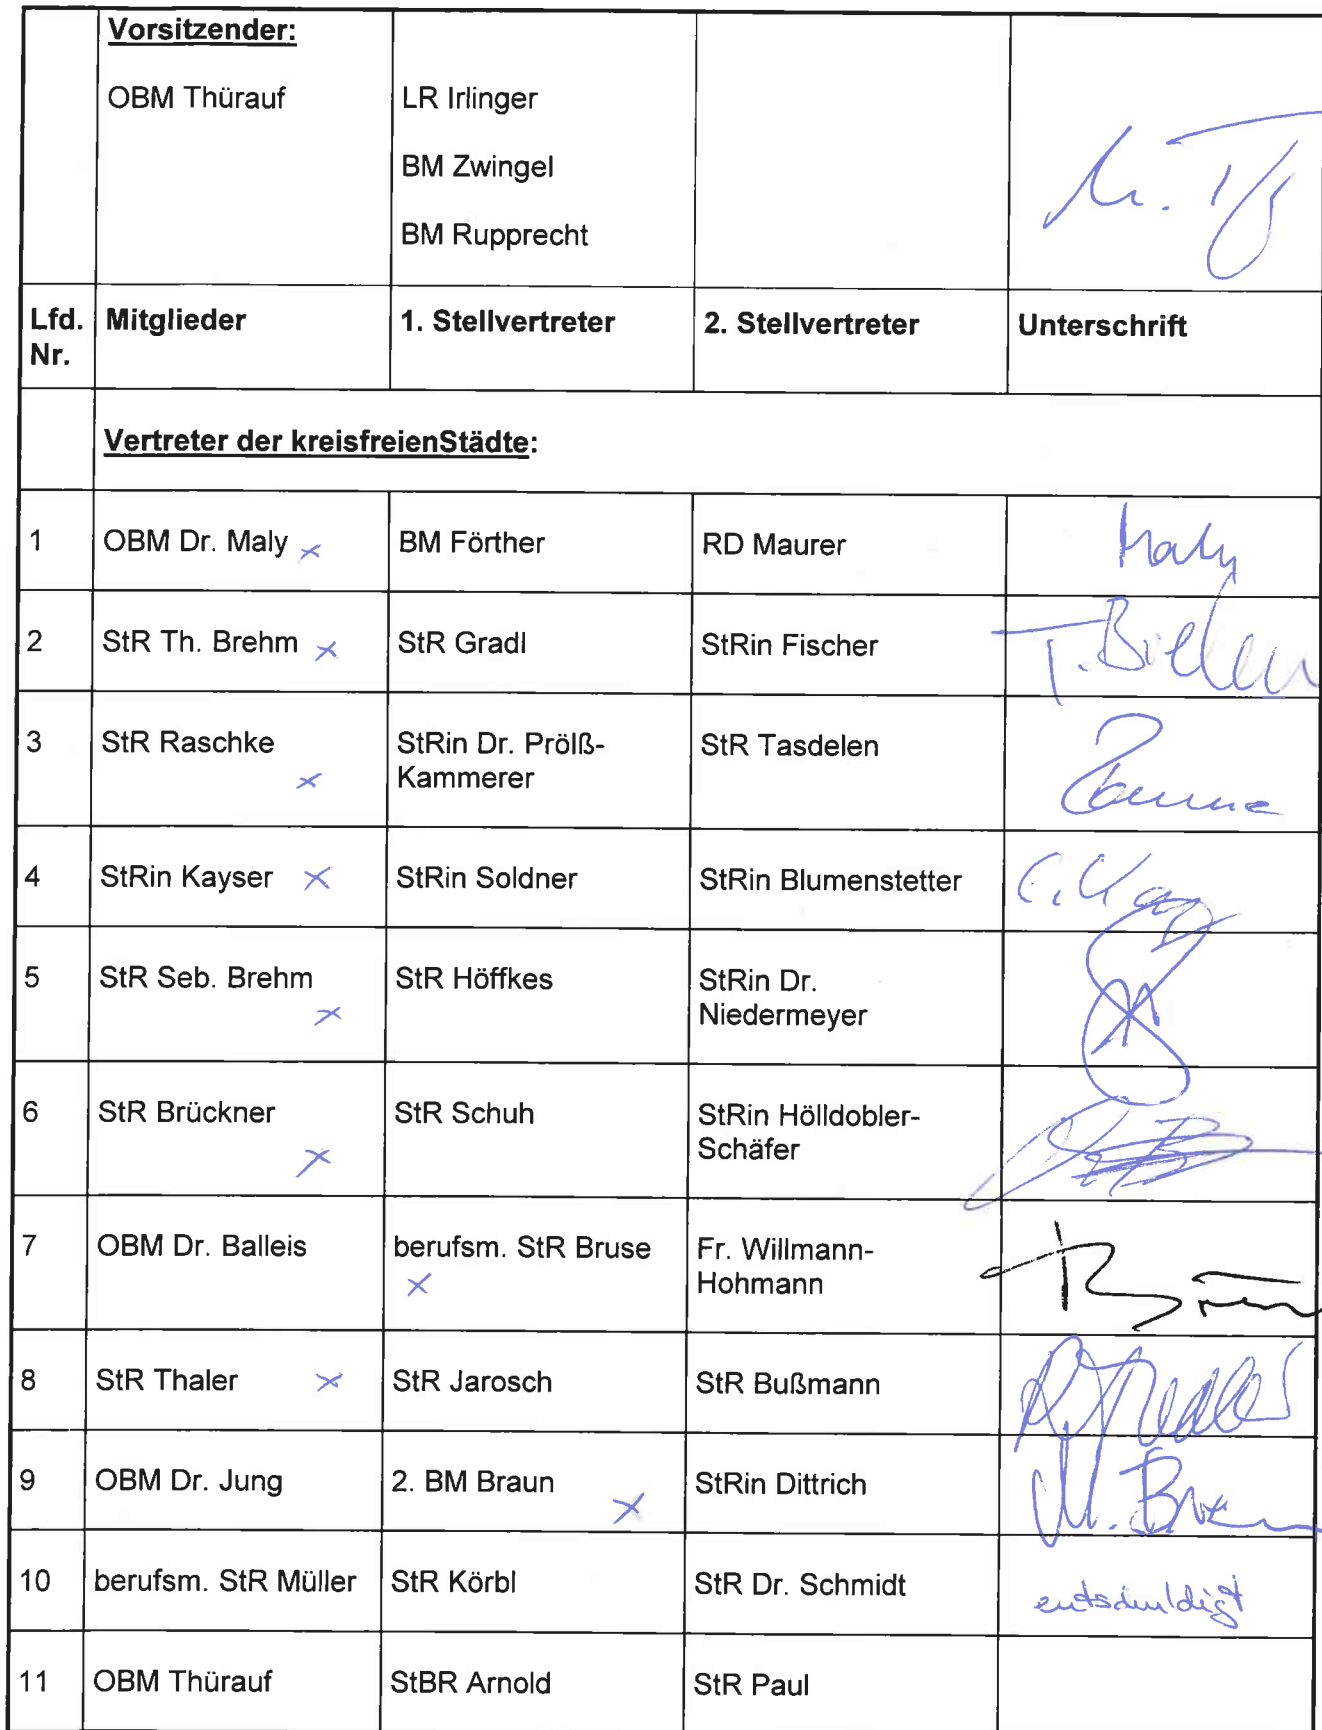 Vorsitzender:
OBM Thürauf
LR Irlinger
BM Zwingel
BM Rupprecht
Lfd. Nr. Mitglieder 1. Stellvertreter 2. Stellvertreter Unterschrift
Vertreter der kreisfreienStädte:
1 OBM Dr. Maly x BM Förther RD Maurer Maly
2 StR Th. Brehm x StR Gradl StRin Fischer
3 StR Raschke x StRin Dr. Prölß-
Kammerer StR Tasdelen
4 StRin Kayser x StRin Soldner StRin Blumenstetter
5 StR Seb. Brehm x StR Höffkes StRin Dr.
Niedermeyer
6 StR Brückner x StR Schuh StRin Hölldobler-
Schäfer
7 OBM Dr. Balleis berufsm. StR Bruse x Fr. Willmann-
Hohmann
8 StR Thaler x StR Jarosch StR Bußmann
9 OBM Dr. Jung 2. BM Braun x StRin Dittrich
10 berufsm. StR Müller StR Körbl StR Dr. Schmidt entschuldigt
11 OBM Thürauf StBR Arnold StR Paul